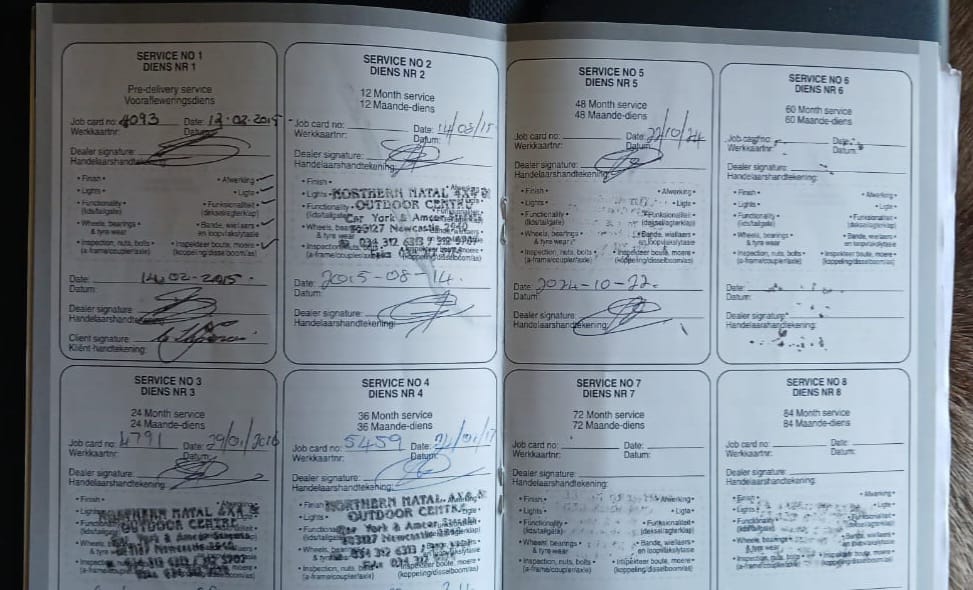 SERVICE NO 1
DIENS NR 1
Pre-delivery service
Voorafleweringsdiens
Job card no: 4093 Date: 12.02.2015
Werkkaartnr: Datum:
Dealer signature:
Handelaarshandtekening:
• Finish • Afwerking •
• Lights • Ligte •
• Functionality (lids/tailgate) • Funksionaliteit • (deksel/agterklap)
• Wheels, bearings & tyre wear • Bande, wiellaers en loopvlakslytasie
• Inspection, nuts, bolts • (a-frame/coupler/axle) • Inspekteer boute, moere • (koppeling/disselboom/as)
Date: 14.02-2015.
Datum:
Dealer signature:
Handelaarshandtekening:
Client signature:
Kliënt-handtekening:
SERVICE NO 2
DIENS NR 2
12 Month service
12 Maande-diens
Job card no: Date:
Werkkaartnr: Datum:
Dealer signature:
Handelaarshandtekening:
• Finish
• Lights
NORTHERN NATAL 4X4 &
OUTDOOR CENTRE
Newcastle 2940
Date: 2015-08-14.
Datum:
Dealer signature:
Handelaarshandtekening:
SERVICE NO 5
DIENS NR 5
48 Month service
48 Maande-diens
Job card no: Date: 22/10/24
Werkkaartnr: Datum:
Dealer signature:
Handelaarshandtekening:
• Finish • Afwerking •
• Lights • Ligte •
• Functionality (lids/tailgate) Funksionaliteit • (deksel/agterklap)
• Wheels, bearings & tyre wear • Bande, wiellaers en loopvlakslytasie
• Inspection, nuts, bolts • (a-frame/coupler/axle) Inspekteer boute, moere • (koppeling/disselboom/as)
Date: 2024-10-22.
Datum:
Dealer signature:
Handelaarshandtekening:
SERVICE NO 6
DIENS NR 6
60 Month service
60 Maande-diens
Job card no: Date:
Werkkaartnr: Datum:
Dealer signature:
Handelaarshandtekening:
• Finish • Afwerking •
• Lights • Ligte •
• Functionality (lids/tailgate) Funksionaliteit • (deksel/agterklap)
• Wheels, bearings & tyre wear • Bande, wiellaers en loopvlakslytasie
• Inspection, nuts, bolts • (a-frame/coupler/axle) Inspekteer boute, moere • (koppeling/disselboom/as)
Date:
Datum:
Dealer signature:
Handelaarshandtekening:
SERVICE NO 3
DIENS NR 3
24 Month service
24 Maande-diens
Job card no: 4791 Date: 29/01/2016
Werkkaartnr: Datum:
Dealer signature:
Handelaarshandtekening:
• Finish
• Lights
NORTHERN NATAL 4X4 &
OUTDOOR CENTRE
SERVICE NO 4
DIENS NR 4
36 Month service
36 Maande-diens
Job card no: 5459 Date:
Werkkaartnr: Datum:
Dealer signature:
Handelaarshandtekening:
• Finish
• Lights
NORTHERN NATAL 4X4 &
OUTDOOR CENTRE
SERVICE NO 7
DIENS NR 7
72 Month service
72 Maande-diens
Job card no: Date:
Werkkaartnr: Datum:
Dealer signature:
Handelaarshandtekening:
• Finish • Afwerking •
• Lights • Ligte •
• Functionality (lids/tailgate) Funksionaliteit • (deksel/agterklap)
• Wheels, bearings & tyre wear • Bande, wiellaers en loopvlakslytasie
• Inspection, nuts, bolts • (a-frame/coupler/axle) Inspekteer boute, moere • (koppeling/disselboom/as)
SERVICE NO 8
DIENS NR 8
84 Month service
84 Maande-diens
Job card no: Date:
Werkkaartnr: Datum:
Dealer signature:
Handelaarshandtekening:
• Finish • Afwerking •
• Lights • Ligte •
• Functionality (lids/tailgate) Funksionaliteit • (deksel/agterklap)
• Wheels, bearings & tyre wear • Bande, wiellaers en loopvlakslytasie
• Inspection, nuts, bolts • (a-frame/coupler/axle) Inspekteer boute, moere • (koppeling/disselboom/as)